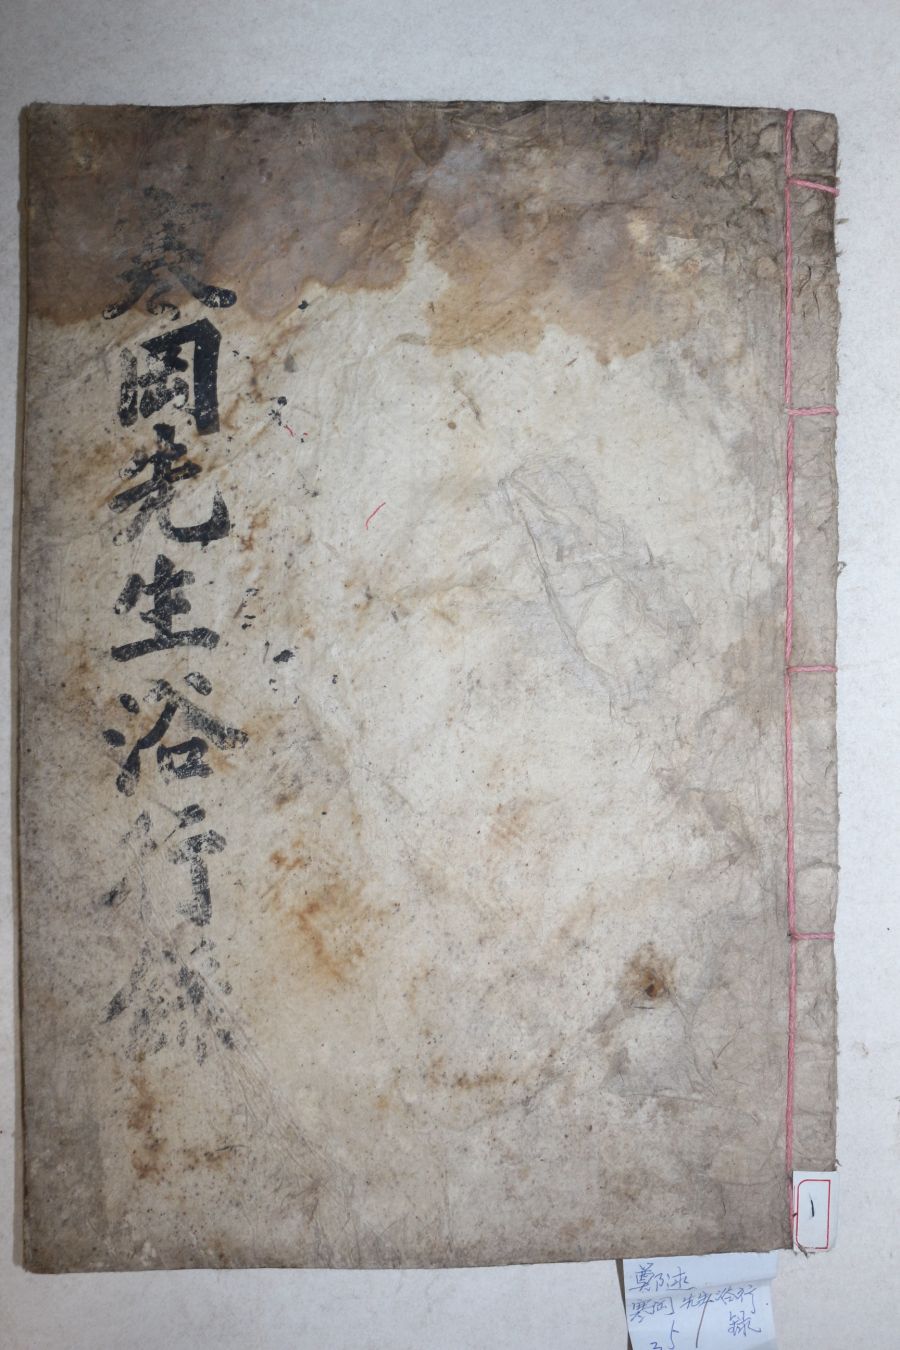 寒岡先生浴行錄
1
鄭逑
寒岡先生浴行
錄